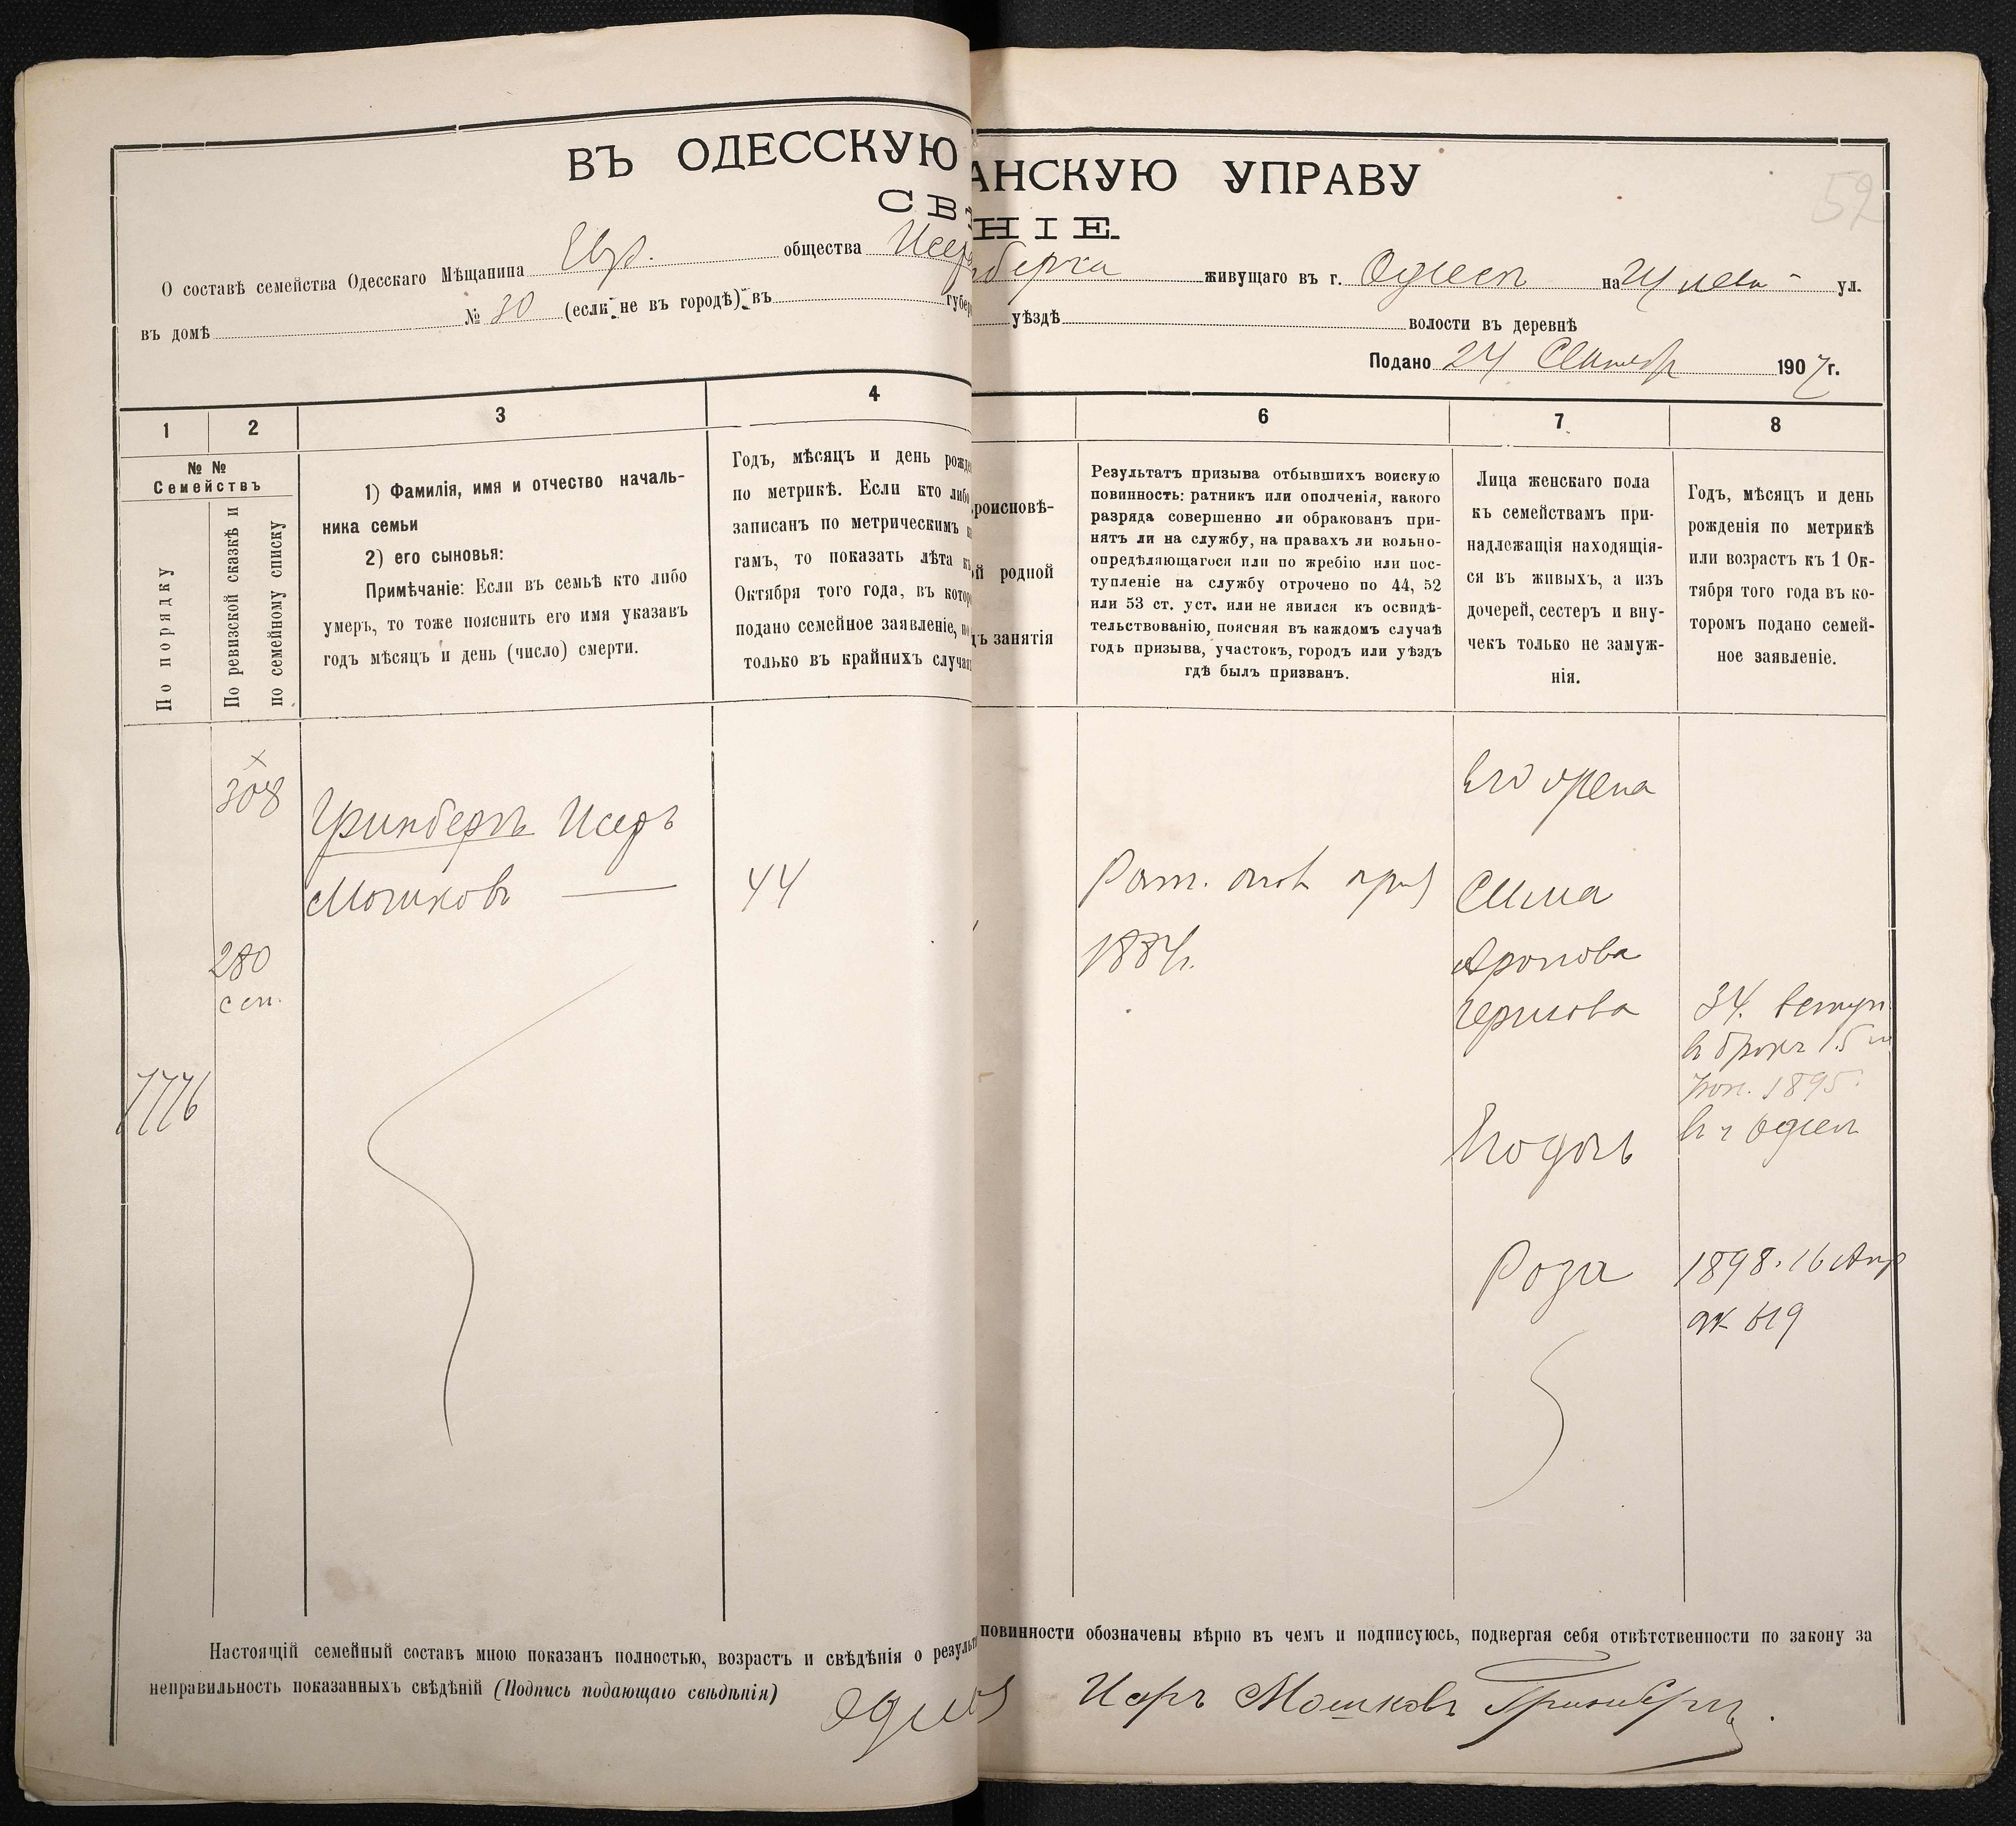 ВЪ ОДЕССКУЮ АНСКУЮ УПРАВУ
СВѢ НІЕ.
52
О составѣ семейства Одесскаго Мѣщанина Евр. общества Исер нберга живущаго въ г. Одессѣ на ул.
въ домѣ № 30 (если не въ городѣ) въ губер уѣздѣ волости въ деревнѣ
Подано 24 Сентябр 1907 г.
1 2 3 4 6 7 8
№ №
Семействъ
По порядку
По ревизской сказкѣ и
по семейному списку
1) Фамилія, имя и отчество началь-
ника семьи
2) его сыновья:
Примѣчаніе: Если въ семьѣ кто либо
умеръ, то тоже пояснить его имя указавъ
годъ мѣсяцъ и день (число) смерти.
Годъ, мѣсяцъ и день рожде
по метрикѣ. Если кто либо
записанъ по метрическимъ к
гамъ, то показать лѣта къ
Октября того года, въ котор
подано семейное заявленіе, но
только въ крайнихъ случая
роисновѣ-
й родной
дъ занятія
Результатъ призыва отбывшихъ воискую
повинность: ратникъ или ополченія, какого
разряда совершенно ли обракованъ при-
нятъ ли на службу, на правахъ ли вольно-
опредѣляющагося или по жребію или пос-
тупленіе на службу отрочено по 44, 52
или 53 ст. уст. или не явился къ освидѣ-
тельствованію, поясняя въ каждомъ случаѣ
годъ призыва, участокъ, городъ или уѣздъ
гдѣ былъ призванъ.
Лица женскаго пола
къ семействамъ при-
надлежащія находящія-
ся въ живыхъ, а изъ
дочерей, сестеръ и вну-
чекъ только не замуж-
нія.
Годъ, мѣсяцъ и день
рожденія по метрикѣ
или возрастъ къ 1 Ок-
тября того года въ ко-
торомъ подано семей-
ное заявленіе.
308
Гринбергъ Исеръ
Мошковъ 44
280
сем.
7776
Рат. опол приз
1884 г.
Его жена
Сима
Аронова
34. вступ.
въ бракъ 15
1895
въ г Одессѣ
Его дочь
Роза 1898. 16 Апр
ак 619
Настоящій семейный составъ мною показанъ полностью, возрастъ и свѣдѣнія о результ повинности обозначены вѣрно въ чемъ и подписуюсь, подвергая себя отвѣтственности по закону за
неправильность показанныхъ свѣдѣній (Подпись подающаго свѣдѣнія)
Исеръ Мошковъ Гринбергъ.